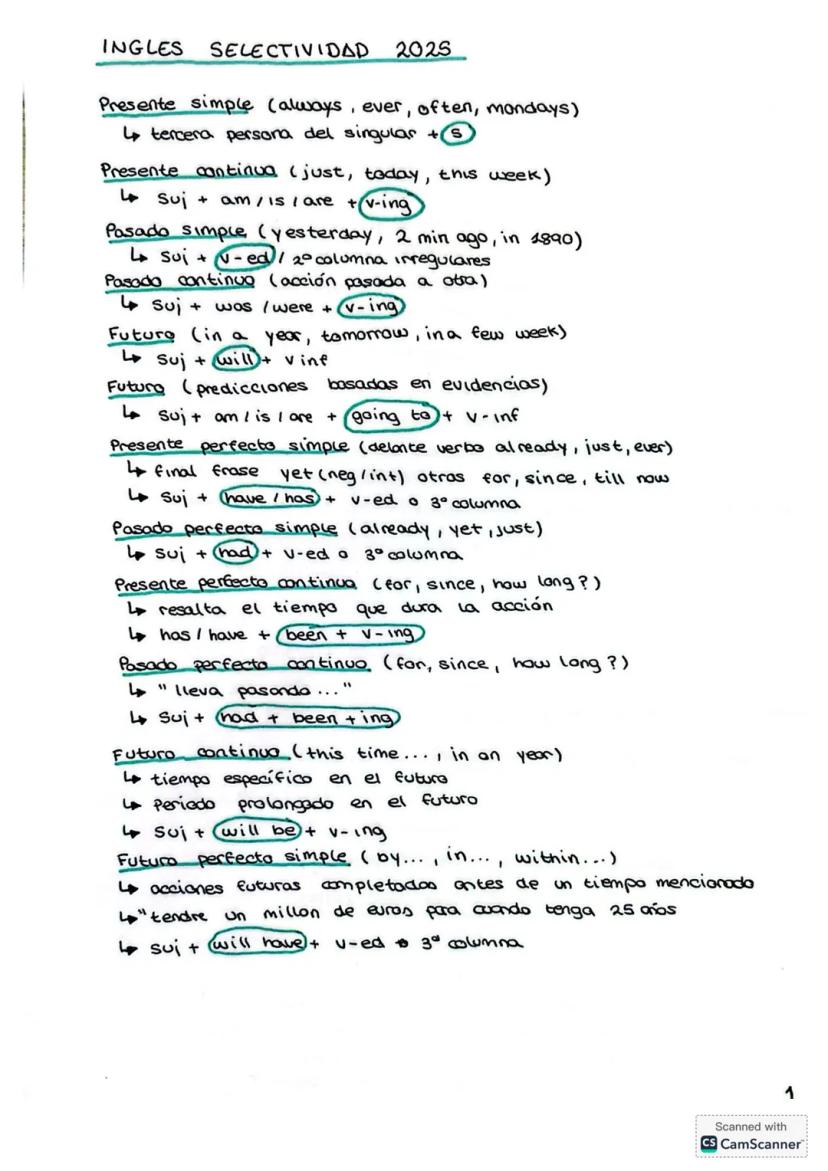 INGLES SELECTIVIDAD 2025
Presente simple (always, ever, often, mondays)
↳ tercera persona del singular + s
Presente continuo (just, today, this week)
↳ Suj + am / is / are + v-ing
Pasado simple (yesterday, 2 min ago, in 1890)
↳ Suj + v-ed / 2º columna irregulares
Pasado continuo (acción pasada a otra)
↳ Suj + was / were + v-ing
Futuro (in a year, tomorrow, in a few week)
↳ Suj + will + v inf
Futuro (predicciones basadas en evidencias)
↳ Suj + am / is / are + going to + v-inf
Presente perfecto simple (delante verbo already, just, ever)
↳ final frase yet (neg / int) otros for, since, till now
↳ Suj + have / has + v-ed o 3º columna
Pasado perfecto simple (already, yet, just)
↳ Suj + had + v-ed o 3º columna
Presente perfecto continuo (for, since, how long?)
↳ resalta el tiempo que dura la acción
↳ has / have + been + v-ing
Pasado perfecto continuo (for, since, how long?)
↳ "lleva pasando..."
↳ Suj + had + been + ing
Futuro continuo (this time..., in an year)
↳ tiempo específico en el futuro
↳ periodo prolongado en el futuro
↳ Suj + will be + v-ing
Futuro perfecto simple (by..., in..., within...)
↳ acciones futuras completadas antes de un tiempo mencionado
↳ "tendre un millon de euros para cuando tenga 25 años
↳ suj + will have + v-ed o 3ª columna
1
Scanned with
CS CamScanner